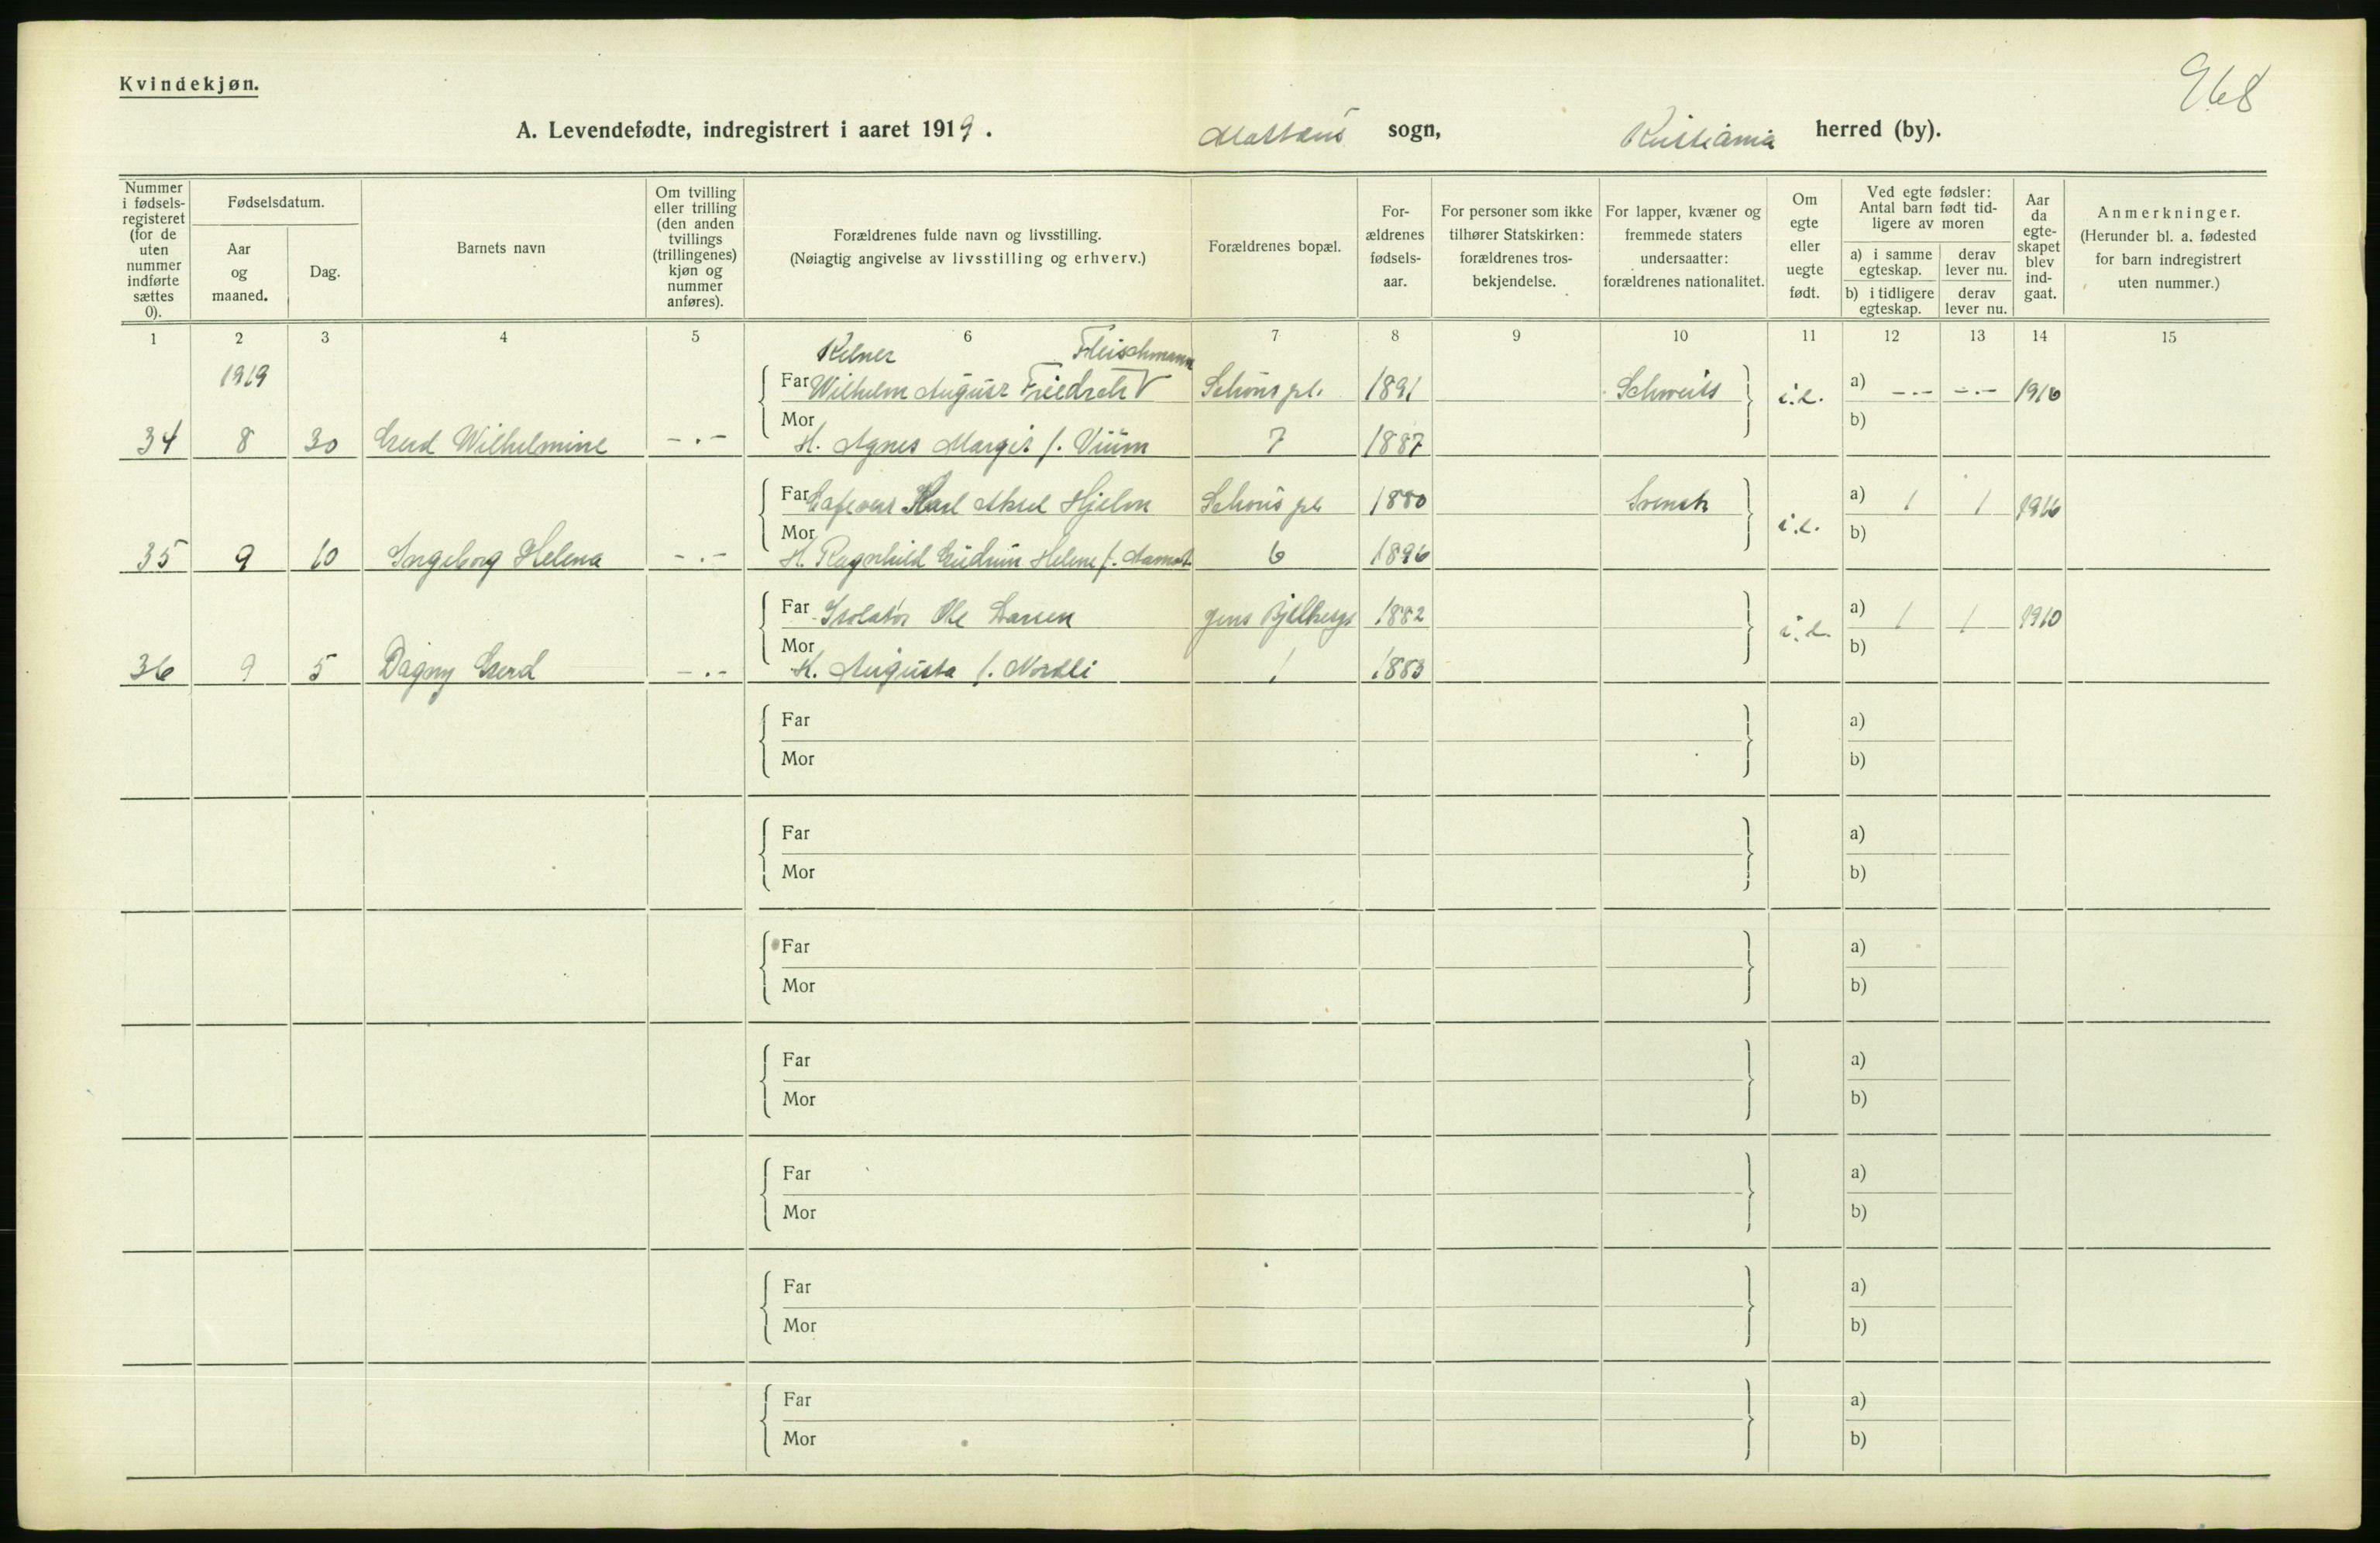 968
Kvindekjøn.
A. Levendefødte, indregistrert i aaret 1919. Mattæus sogn, Kristiania herred (by).
Nummer i fødsels- registeret (for de uten nummer indførte sættes 0).
Fødselsdatum.
Aar og maaned.
Dag.
Barnets navn
Om tvilling eller trilling (den anden tvillings (trillingenes) kjøn og nummer anføres).
Forældrenes fulde navn og livsstilling.
(Nøiagtig angivelse av livsstilling og erhverv.)
Forældrenes bopæl.
For- ældrenes fødsels- aar.
For personer som ikke tilhører Statskirken: forældrenes tros- bekjendelse.
For lapper, kvæner og fremmede staters undersaatter: forældrenes nationalitet.
Om egte eller uegte født.
Ved egte fødsler: Antal barn født tid- ligere av moren
a) i samme egteskap. derav lever nu.
b) i tidligere egteskap. derav lever nu.
Aar da egte- skapet blev ind- gaat.
Anmerkninger.
(Herunder bl. a. fødested for barn indregistrert uten nummer.)
1 2 3 4 5 6 7 8 9 10 11 12 13 14 15
Kelner Fleischmann
1919 Far Wilhelm August Friedrich V Schous pl. 1891 Schweits i.e. a) -.- -.- 1916
34 8 30 Gerd Wilhelmine -.- Mor H. Agnes Margit f. Viüm 7 1887 b)
Far Cafevert Karl Aksel Hjelm Schous pl. 1880 Svensk i.e. a) 1 1 1916
35 9 10 Ingeborg Helena -.- Mor H. Ragnhild Gudrun Helene f. 6 1896 b)
Far Isolatør Ole Larsen Jens Bjelkesgt 1882 i.e. a) 1 1 1910
36 9 5 Dagny Gerd -.- Mor H. Augusta f. Nordli 1 1883 b)
Far a)
Mor b)
Far a)
Mor b)
Far a)
Mor b)
Far a)
Mor b)
Far a)
Mor b)
Far a)
Mor b)
Far a)
Mor b)